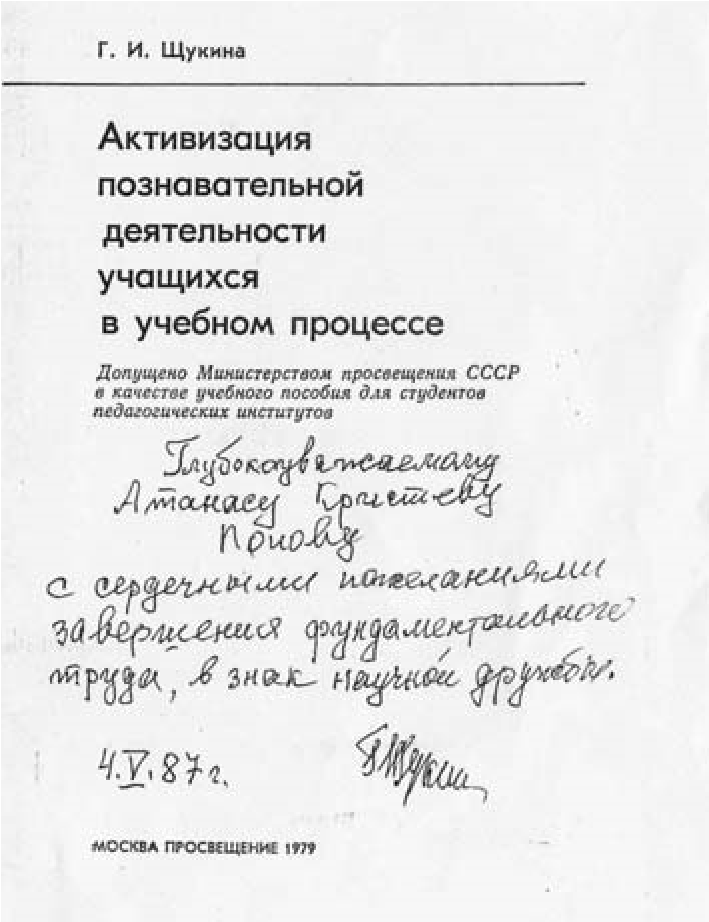 Г. И. Щукина
Активизация
познавательной
деятельности
учащихся
в учебном процессе
Допущено Министерством просвещения СССР
в качестве учебного пособия для студентов
педагогических институтов
Глубокоуважаемому
Атанасу Кръстеву
Попову
с сердечными пожеланиями
завершения фундаментального
труда, в знак научной дружбы.
4.V.87 г.
ГЩукина
МОСКВА ПРОСВЕЩЕНИЕ 1979